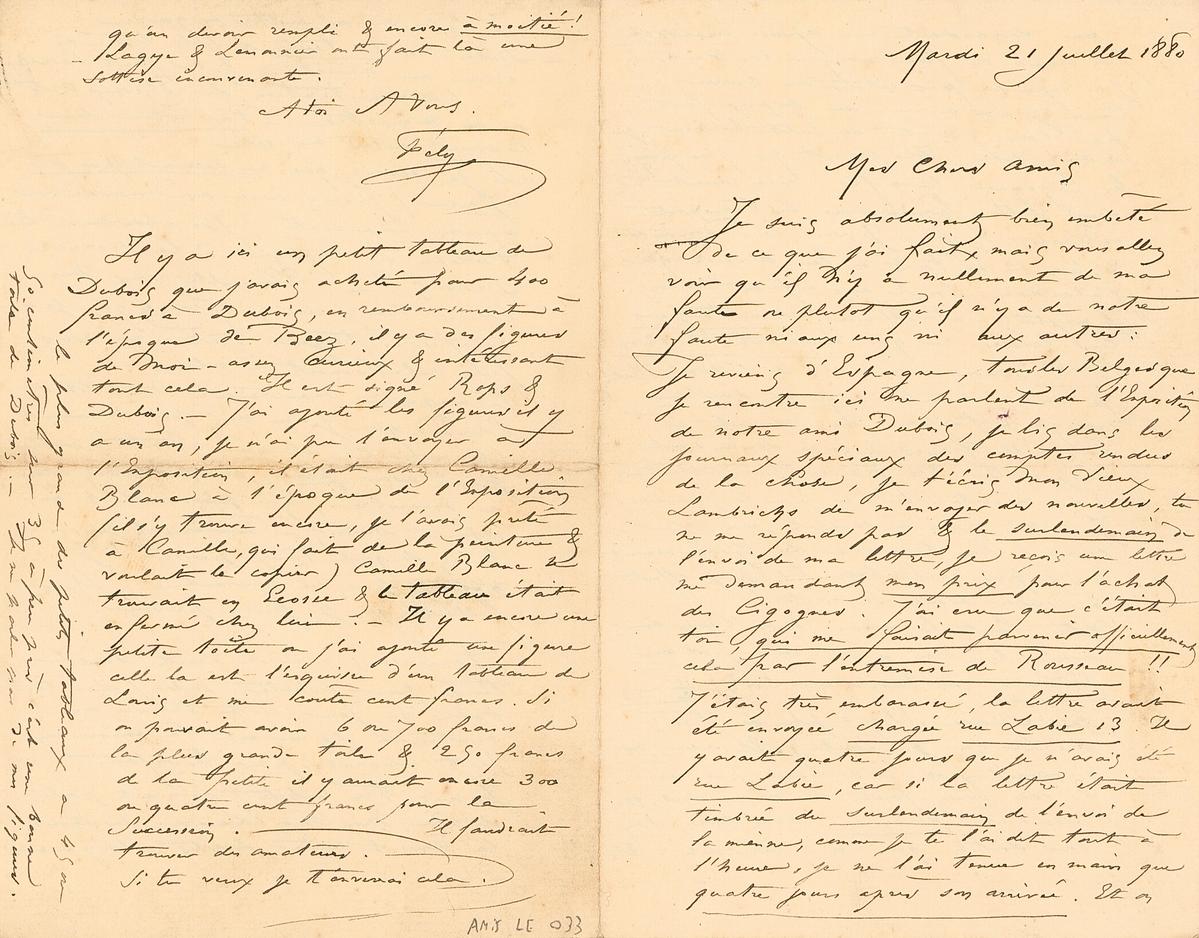 Mardi 21 Juillet 1880
Mes Chers Amis
Je suis absolument bien embêté
de ce que j'ai fait, mais vous allez
voir qu'il n'y a nullement de ma
faute ou plutot qu'il n'y a de notre
faute ni aux uns ni aux autres:
Je reviens d'Espagne, tous les Belges que
je rencontre ici me parlent de l'Exposition
de notre ami Dubois, je lis dans les
journaux spéciaux des comptes rendus
de la chose, je t'écris mon vieux
Lambrichs de m'envoyer des nouvelles, tu
ne me réponds pas & le surlendemain de
l'envoi de ma lettre, je reçois une lettre
me demandant mon prix pour l'achat
des Cigognes. J'ai cru que c'était
toi, qui me faisait parvenir officiellement
cela par l'entremise de Rousseau !!
J'étais très embarassé, la lettre avait
été envoyée chargée rue Labie 13. Il
y avait quatre jours que je n'avais été
rue Labie, car si la lettre était
timbrée du surlendemain de l'envoi de
la mienne, comme je te l'ai dit tout à
l'heure, je ne l'ai tenue en main que
quatre jours après son arrivée. Et on
qu'un devoir rempli & encore à moitié!
- Lagye & Lemonnier ont fait là une
sottise inconvenante.
A toi A Vous.
Fély
Il y a ici un petit tableau de
Dubois que j'avais acheté pour 400
francs à Dubois, en remboursement à
l'époque de Beez, il y a des figures
de moi - assez curieux & intéressant
tout cela. Il est signé Rops &
Dubois. - J'ai ajouté les figures il y
a un an, je n'ai pu l'envoyer à
l'Exposition, il était chez Camille
Blanc à l'époque de l'Exposition
(il s'y trouve encore, je l'avais prêté
à Camille, qui fait de la peinture &
voulait le copier) Camille Blanc se
trouvait en Ecosse & le tableau était
enfermé chez lui. - Il y a encore une
petite toile où j'ai ajouté une figure
celle la est l'esquisse d'un tableau de
Louis et me coute cent francs. Si
on pouvait avoir 6 ou 700 francs de
la plus grande toile & 250 francs
de la petite il y aurait encore 300
ou quatre cent francs pour la
Succession. Il faudrait
trouver des amateurs.
Si tu veux je t'enverrai cela.
le plus grand des petits tableaux a 45 ou
50 centimètres sur 35 à peu près c'est une bonne
toile de Dubois. - Je ne parle pas de mes figures.
AMIS LE 033